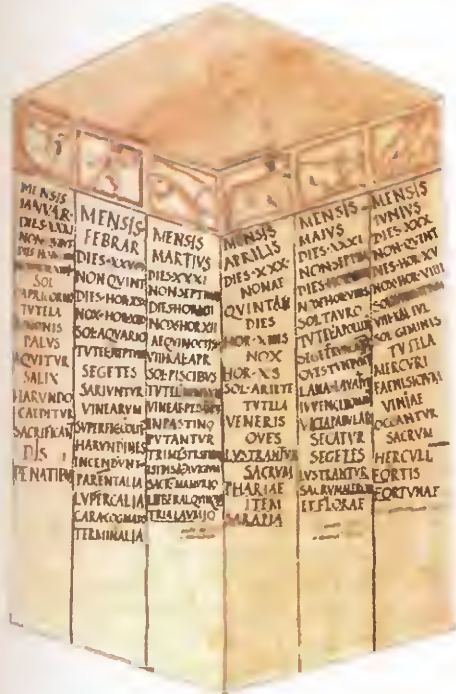 MENSIS
IANVAR
DIES·XXXI
NON·QVINT
SOL
CAPRICORNO
TVTELA
IVNONIS
PALVS
AQVITVR
SALIX
HARVNDO
CAEDITVR
SACRIFICANT
DIS
PENATIBVS
MENSIS
FEBRAR
DIES·XXVIII
NON·QVINT
DIES·HOR·X
NOX·HOR·XIII
SOL·AQVARIO
TVTEL·NEPTVNI
SEGETES
SARIVNTVR
VINEARVM
SVPERFIC·COLIT
HARVNDINES
INCENDVNT
PARENTALIA
LVPERCALIA
CARA·COGNATIO
TERMINALIA
MENSIS
MARTIVS
DIES·XXXI
NON·SEPTIMAN
DIES·HOR·XII
NOX·HOR·XII
AEQVINOCTIVM
VIII·KAL·APR
SOL·PISCIBVS
TVTEL
VINEAE
INPASTINO
PVTANTVR
TRIMESTR
SACR·MAMVRIO
LIBERAL·QVINQ
TRIA·LAVATIO
MENSIS
APRILIS
DIES·XXX
NONAE
QVINTAN
DIES
HOR·XIIIS
NOX
HOR·XS
SOL·ARIETE
TVTELA
VENERIS
OVES
LVSTRANTVR
SACRVM
PHARIAE
ITEM
SARAPIA
MENSIS
MAIVS
DIES·XXXI
NON·SEPTIM
DIES
NOX·HOR·VIIIIS
SOL·TAVRO
TVTEL·APOLLIN
OVES·TONDENT
LANA·LAVATVR
IVVENCI·DOMANT
VICIA·PABVLAR
SECATVR
SEGETES
LVSTRANTVR
SACRVM·MERCVR
ET·FLORAE
MENSIS
IVNIVS
DIES·XXX
NON·QVINT
DIES·HOR·XV
NOX·HOR·VIIII
VIII·KAL·IVL
SOL·GEMINIS
TVTELA
MERCVRI
FAENISICIVM
VINIAE
OCCANTVR
SACRVM
HERCVLI
FORTIS
FORTVNAE